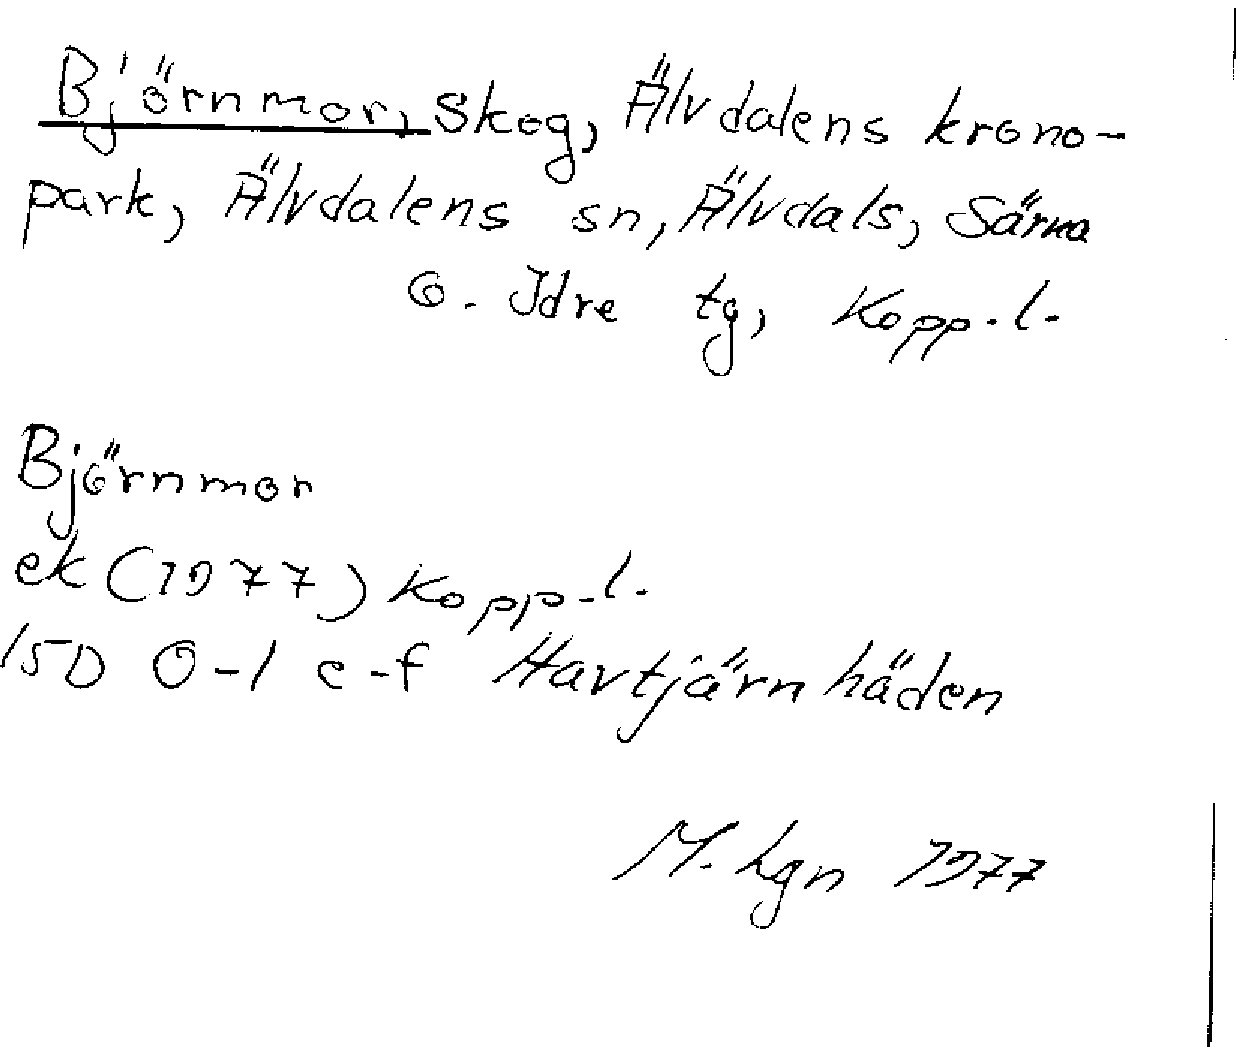 Björnmor, skog, Älvdalens krono-
park, Älvdalens sn, Älvdals, Särna
o. Idre tg, Kopp. l.
Björnmor
ek (1977) Kopp. l.
15D 0-1 e-f Havtjärnhäden
M. hgn 1977